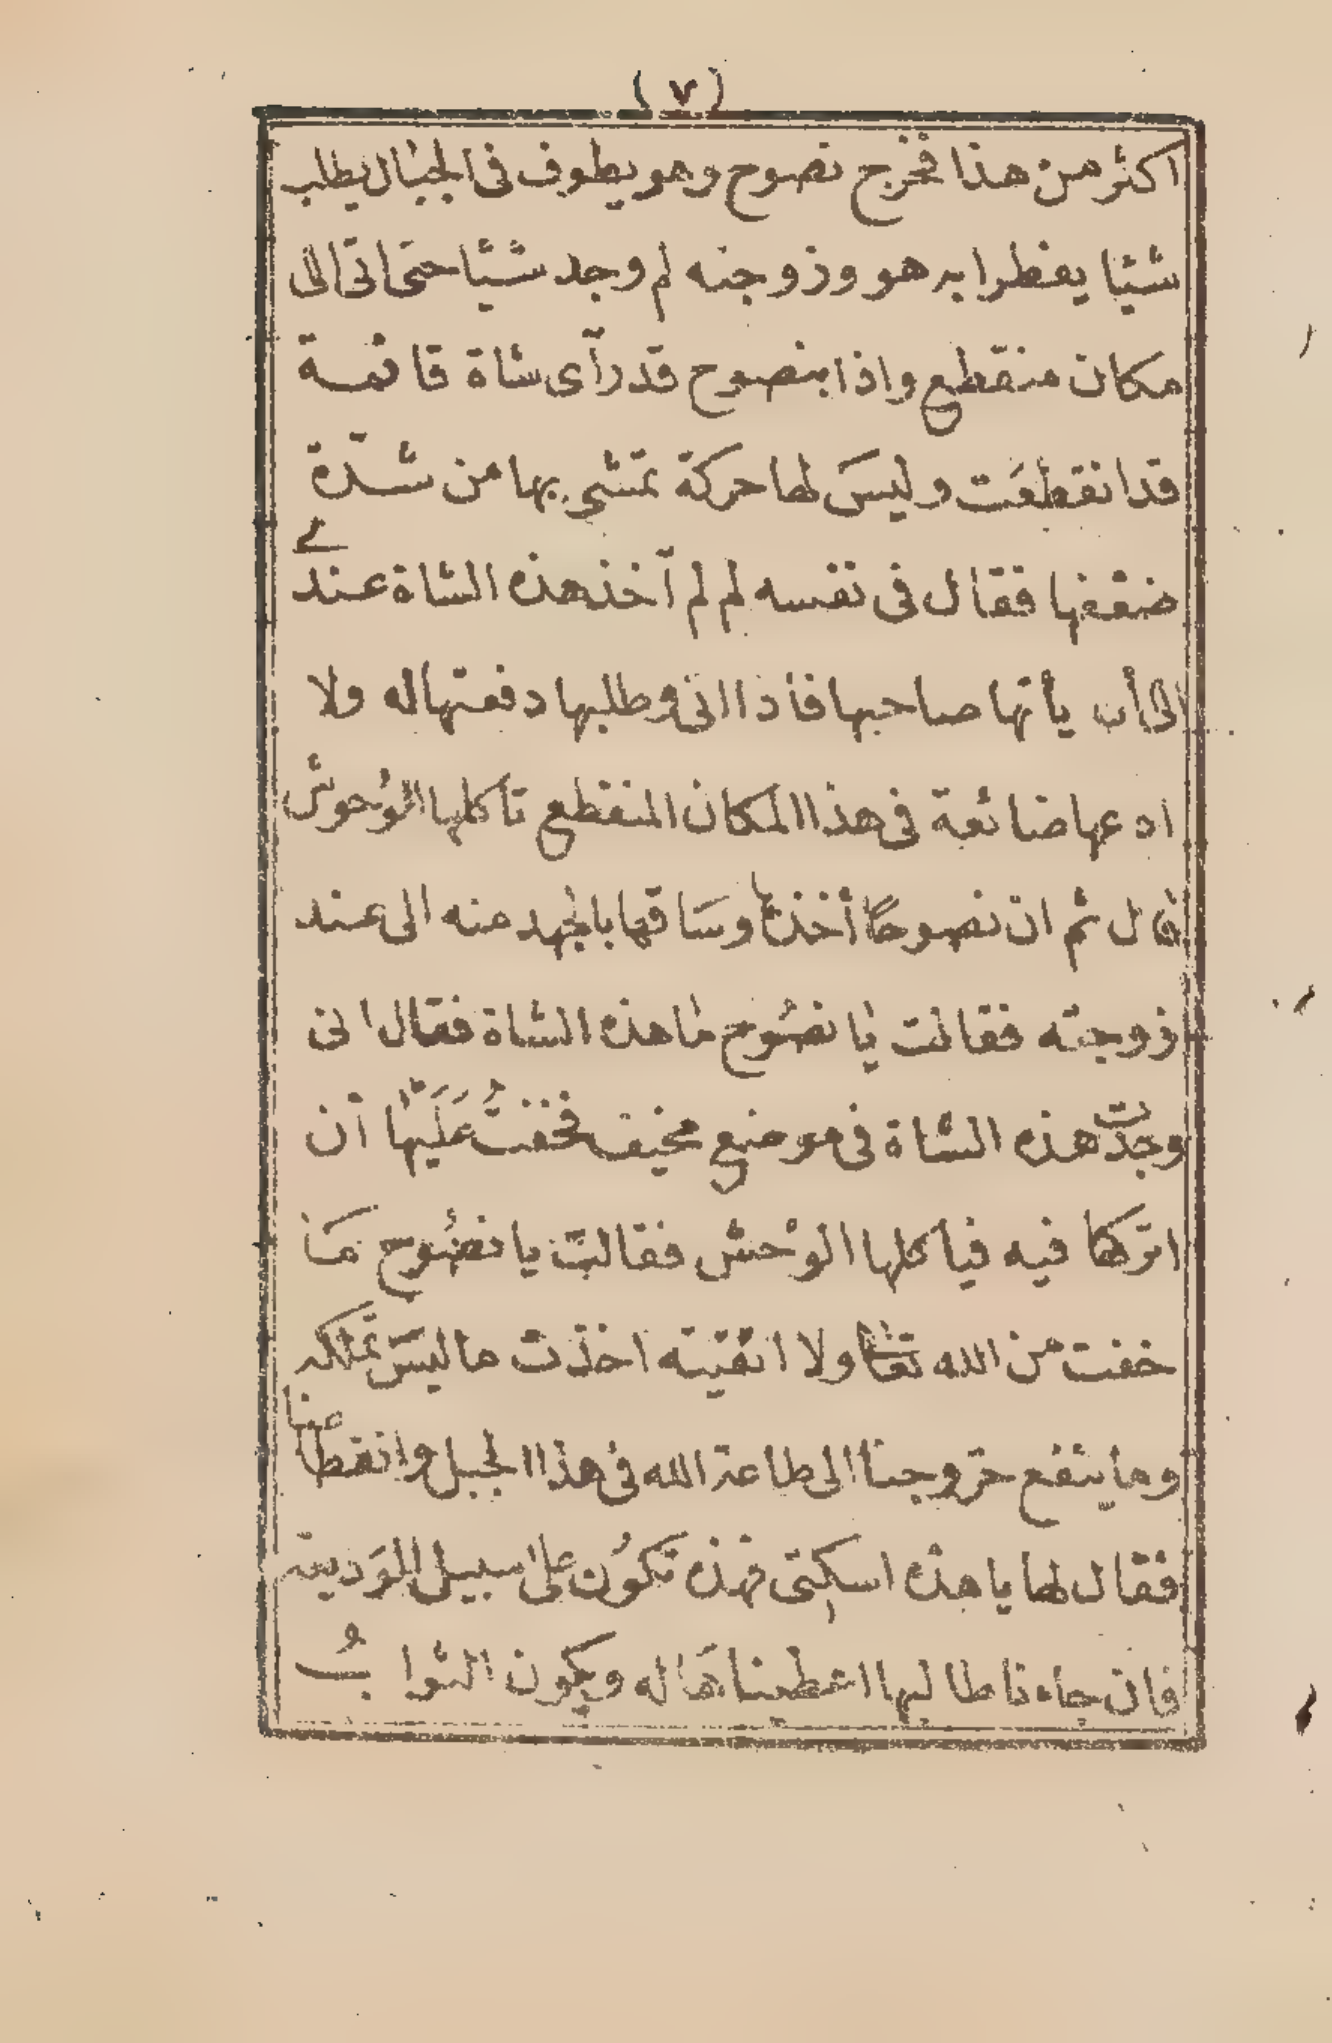 (٧)
اكثر من هذا فخرج نصوح وهو يطوف فى الجبال يطلب
شيئا يفطرا به هو وزوجته لم وجد شيئا حتى اتى الى
مكان منقطع واذا بنصوح قد رآى شاة قائمة
قد انقطعت وليسَ لها حركة تمشى بها من شدّة
ضعفها فقال فى نفسه لم لم آخذ هذه الشاة عندى
الى أن يأتها صاحبها فأذا اتى وطلبها دفعتها له ولا
ادعها ضائعة فى هذا المكان المنقطع تاكلها الوُحوش
قال ثم ان نصوحًا أخذها وسَاقها بالجهد منه الى عند
زوجته فقالت يا نصُوح ما هذه الشاة فقال انى
وجدت هذه الشاة فى موضع مخيف فخفتُ عَلَيْها أن
اتركها فيه فيأكلها الوْحش فقالت يا نصُوح مَا
خفت من الله تعالى ولا اتقيته اخذت ما ليسَ تملكه
وما ينفع خروجنا الى طاعة الله فى هذا الجبل وانقطاعنا
فقال لها يا هذه اسكتى فهذه تكوُن على سبيل الوَديعة
فان جاءنا طالبها اعطيناهَا له ويكون الثوابُ